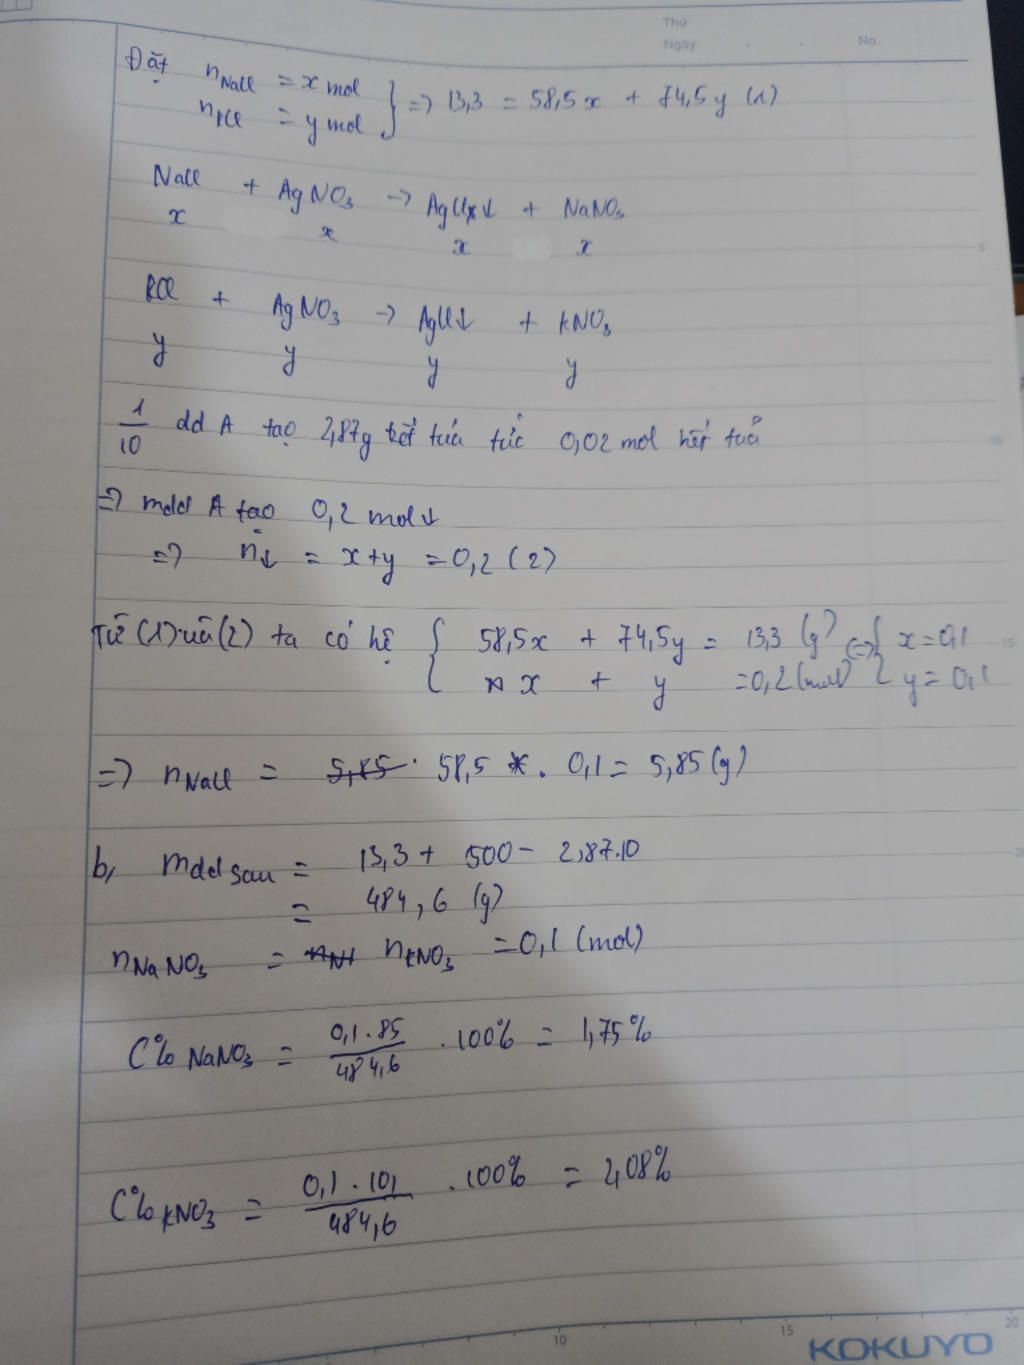 Thứ
Ngày . . No.
Đặt nNaCl = x mol
nKCl = y mol } => 13,3 = 58,5x + 74,5y (1)
NaCl + AgNO3 -> AgCl↓ + NaNO3
x x x x
KCl + AgNO3 -> AgCl↓ + KNO3
y y y y
1/10 dd A tạo 2,87g kết tủa tức 0,02 mol kết tủa
=> mdd A tạo 0,2 mol↓
=> n↓ = x+y = 0,2 (2)
Từ (1) và (2) ta có hệ { 58,5x + 74,5y = 13,3 (g) <=> { x = 0,1
x + y = 0,2 (mol) { y = 0,1
=> nNaCl = 5,85 . 58,5 . 0,1 = 5,85 (g)
b, mdd sau = 13,3 + 500 - 2,87.10
= 484,6 (g)
nNaNO3 = nKNO3 = 0,1 (mol)
C% NaNO3 = 0,1.85/484,6 . 100% = 1,75%
C% KNO3 = 0,1.101/484,6 . 100% = 2,08%
5
10
15
20
10 15 20
KOKUYO